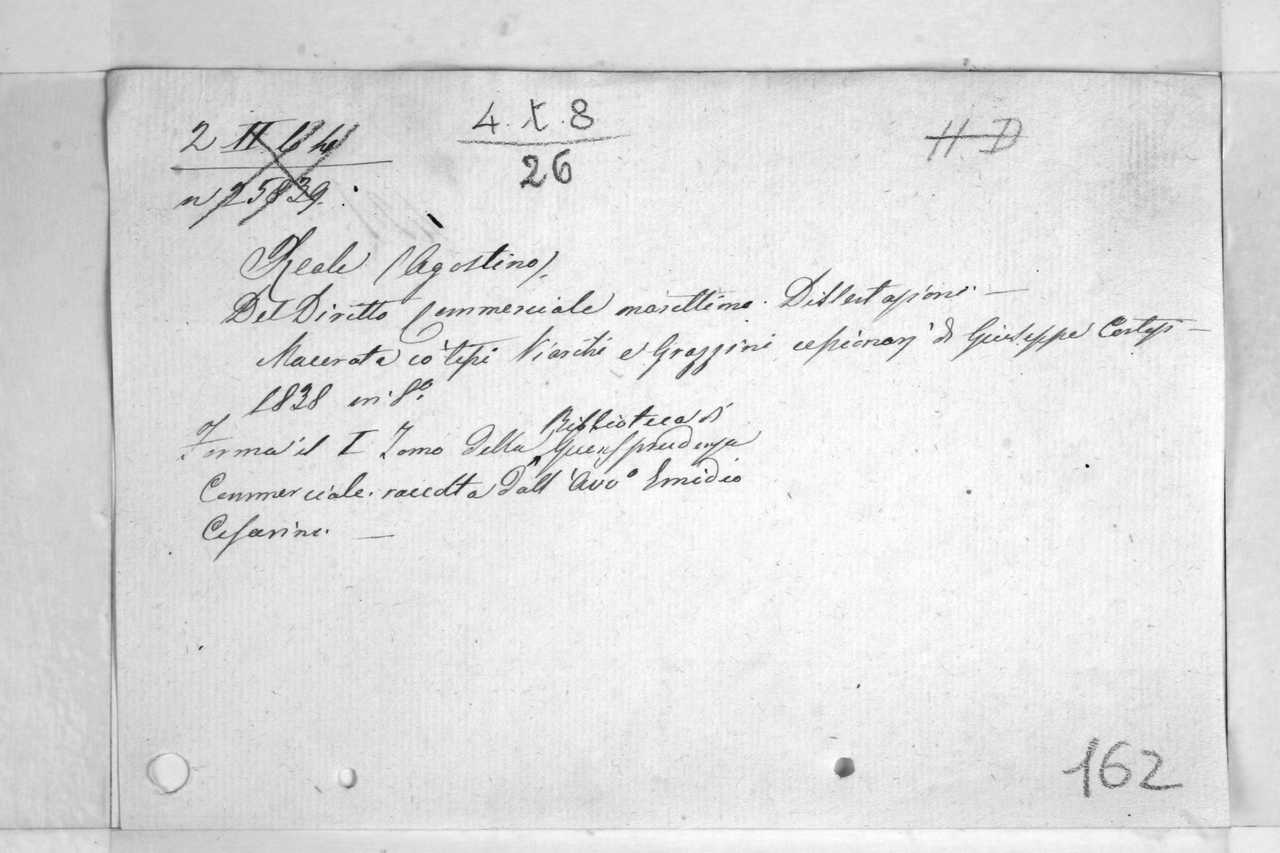 4. X. 8
26
H. D
2 II
n 25839.
Reale (Agostino)
Del Diritto Commerciale marittimo. Dissertazione. —
Macerata co' tipi Viarchi e Grazzini cessionarj di Giuseppe Cortesi —
1838 in 8.º
Forma il I Tomo della Biblioteca di Giurisprudenza
Commerciale raccolta dall' Avvº Emidio
Cesarini. —
162